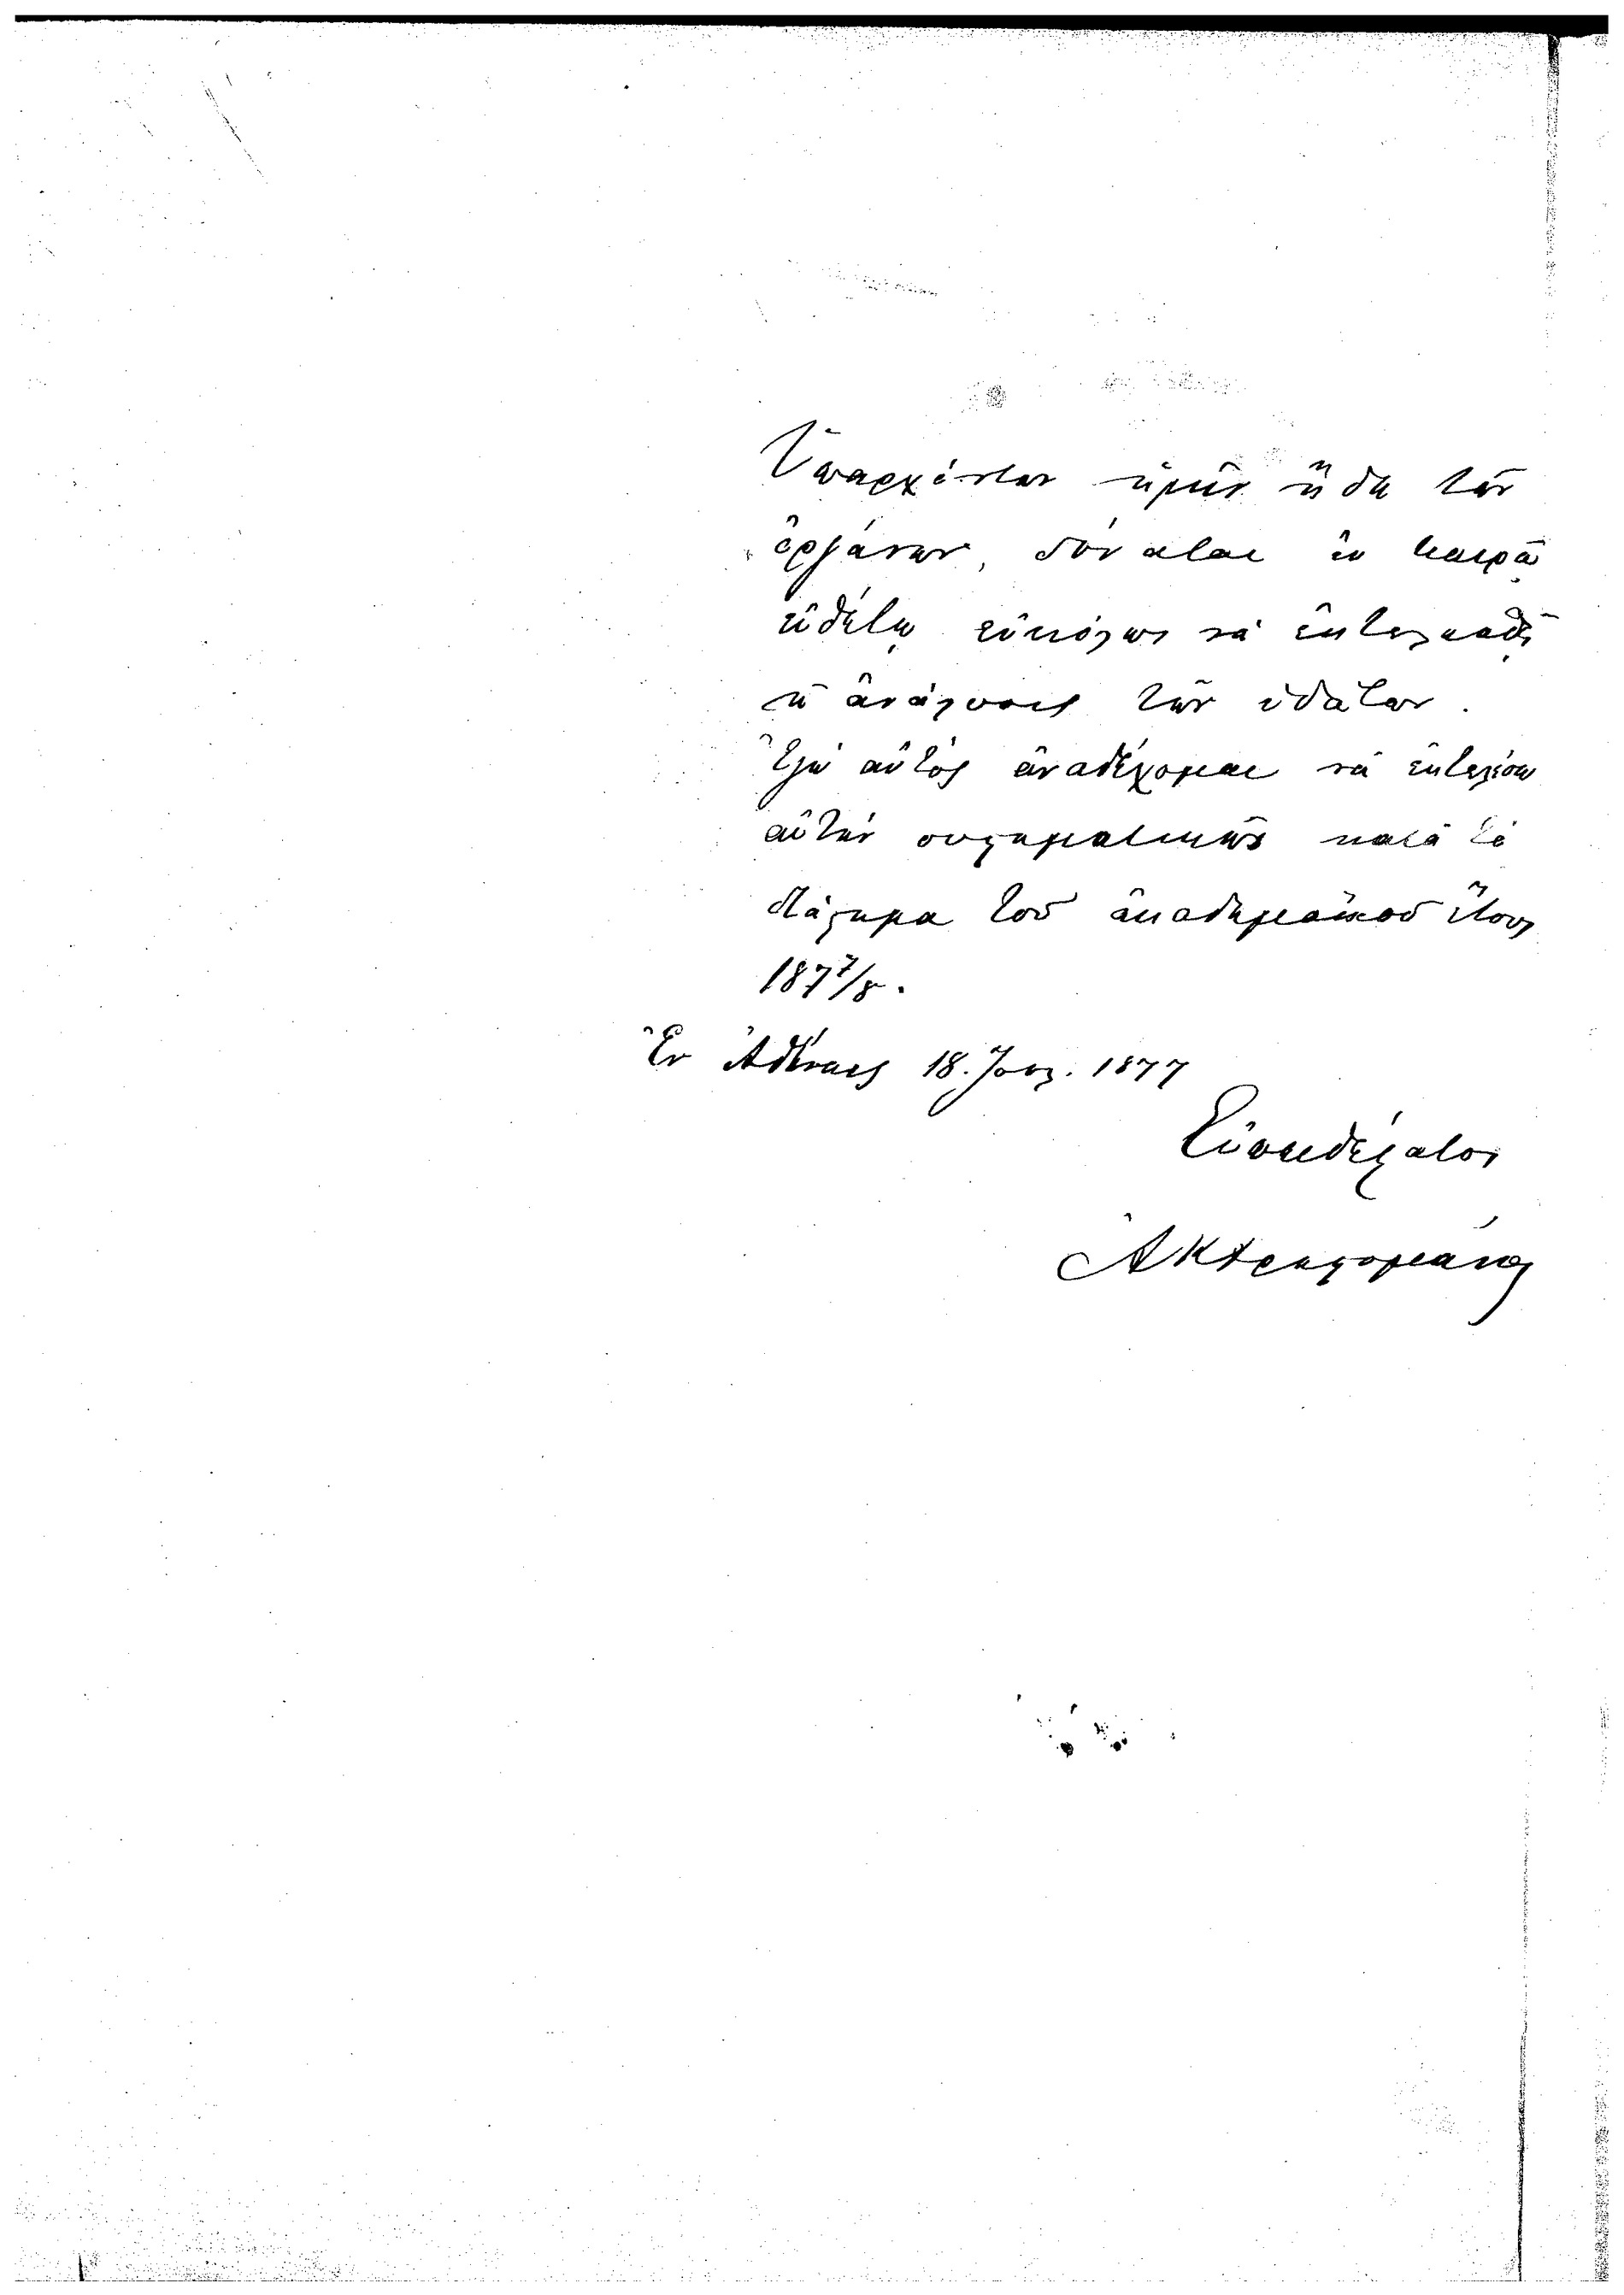 Ὑπαρχόντων ἡμῖν ἤδη τῶν
ὀργάνων, δύναται ἐν καιρῷ
εὐθέτῳ εὐκόλως νὰ ἐκτελεσθῇ
ἡ ἀνάλυσις τῶν ὑδάτων.
Ἐγὼ αὐτὸς ἀναδέχομαι νὰ ἐκτελέσω
αὐτὴν συστηματικῶς κατὰ τὸ
διάστημα τοῦ ἀκαδημαϊκοῦ ἔτους
187⁷/₈.
Ἐν Ἀθήναις 18. Ἰουλ. 1877
Εὐπειθέστατος
ΑΚΧρηστομάνος